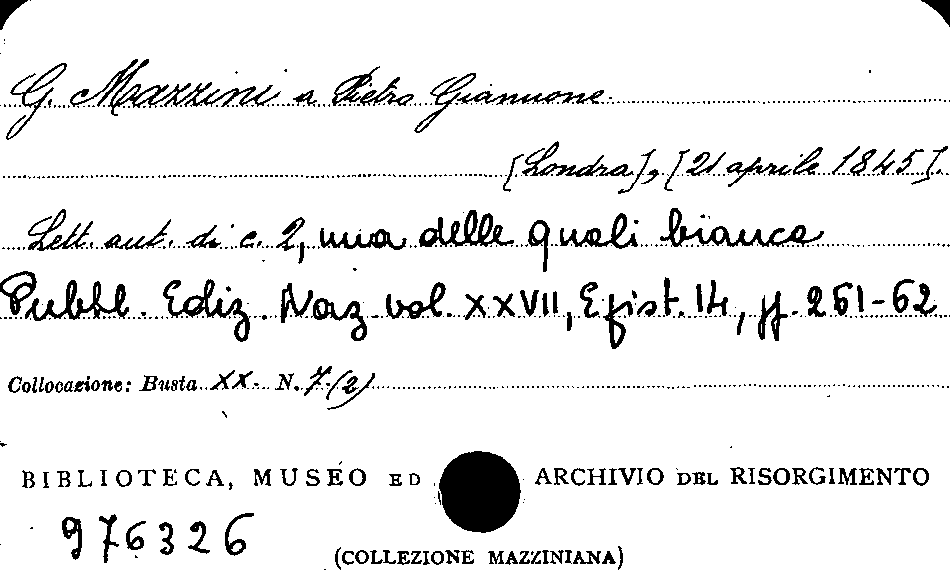 G. Mazzini a Pietro Giannone
[Londra], [21 aprile 1845].
Lett. aut. di c. 2, una delle quali bianca
Pubbl. Ediz. Naz. vol. XXVII, Epist. 14, pp. 261-62
Collocazione: Busta XX. N. 7.(2)
BIBLIOTECA, MUSEO ED ARCHIVIO DEL RISORGIMENTO
976326
(COLLEZIONE MAZZINIANA)